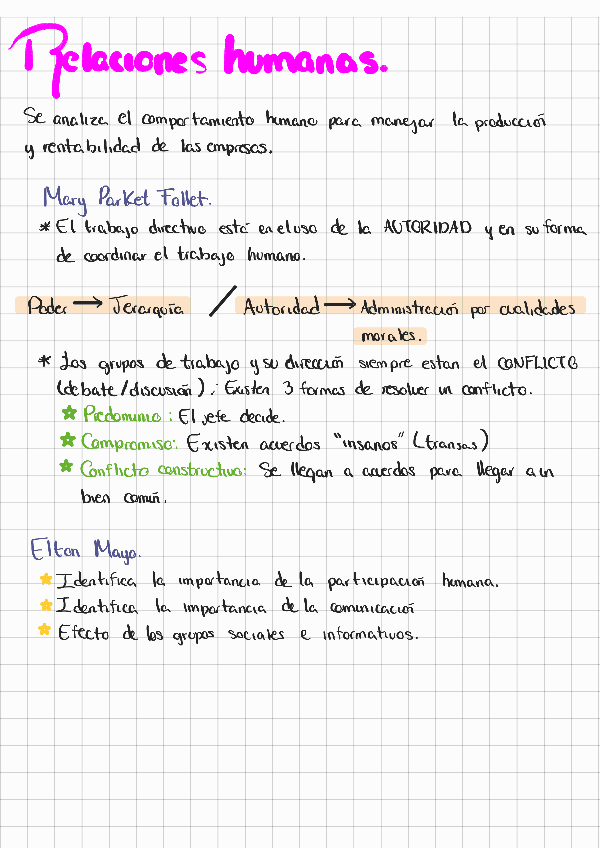 Relaciones humanas.
Se analiza el comportamiento humano para manejar la producción
y rentabilidad de las empresas.
Mary Parket Follet.
* El trabajo directivo está en el uso de la AUTORIDAD y en su forma
de coordinar el trabajo humano.
Poder → Jerarquía / Autoridad → Administración por cualidades
morales.
* Los grupos de trabajo y su dirección siempre estan el CONFLICTO
(debate/discusión). Existen 3 formas de resolver un conflicto.
Predominio: El jefe decide.
Compromiso: Existen acuerdos "insanos" (transas)
Conflicto constructivo: Se llegan a acuerdos para llegar a un
bien común.
Elton Mayo.
Identifica la importancia de la participación humana.
Identifica la importancia de la comunicación
Efecto de los grupos sociales e informativos.